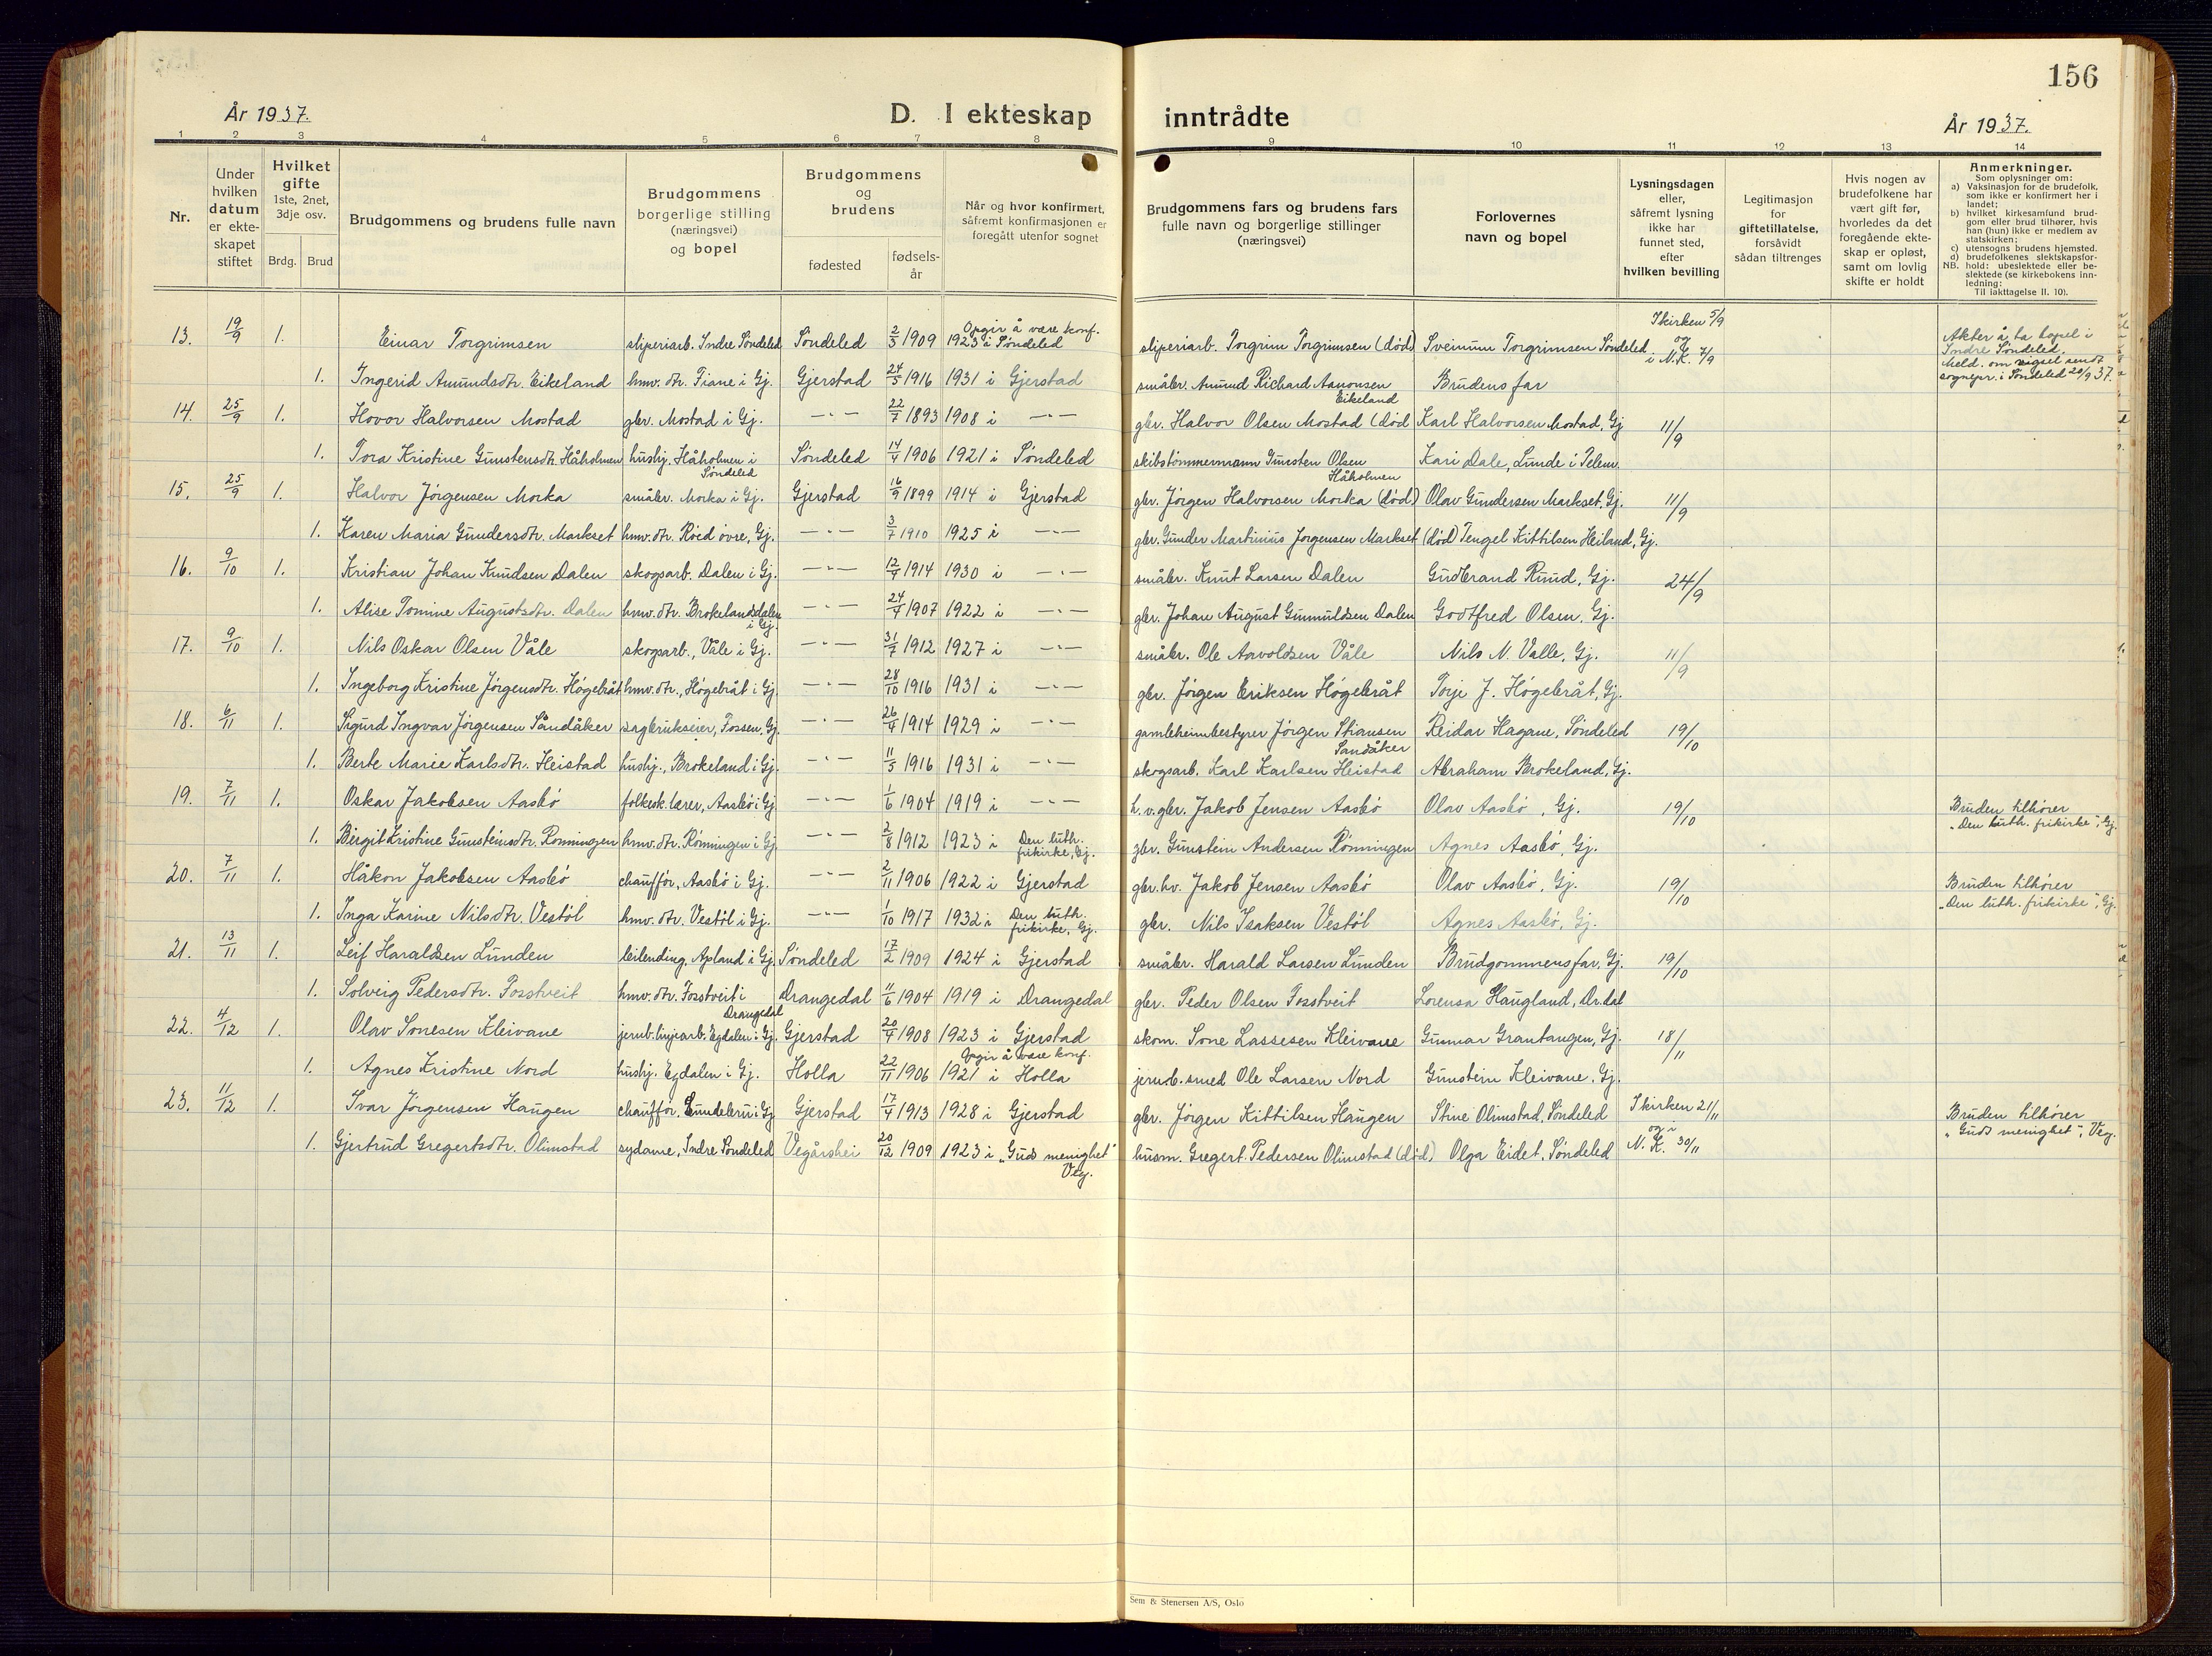 156
År 1937.
D. I ekteskap inntrådte
År 1937.
1 2 3 4 5 6 7 8 9 10 11 12 13 14
Nr.
Under hvilken datum er ekteskapet stiftet
Hvilket gifte 1ste, 2net, 3dje osv.
Brdg. Brud
Brudgommens og brudens fulle navn
Brudgommens borgerlige stilling (næringsvei) og bopel
Brudgommens og brudens
fødested
fødselsår
Når og hvor konfirmert, såfremt konfirmasjonen er foregått utenfor sognet
Brudgommens fars og brudens fars fulle navn og borgerlige stillinger (næringsvei)
Forlovernes navn og bopel
Lysningsdagen eller, såfremt lysning ikke har funnet sted, efter hvilken bevilling
Legitimasjon for giftetillatelse, forsåvidt sådan tiltrenges
Hvis nogen av brudefolkene har vært gift før, hvorledes da det foregående ekteskap er opløst, samt om lovlig skifte er holdt
Anmerkninger.
Som oplysninger om:
a) Vaksinasjon for de brudefolk, som ikke er konfirmert her i landet;
b) hvilket kirkesamfund brudgom eller brud tilhører, hvis han (hun) ikke er medlem av statskirken;
c) utensogns brudens hjemsted.
d) brudefolkenes slektskapsforhold: ubeslektede eller beslektede (se kirkebokens innledning:
NB.
Til iakttagelse II. 10).
13. 19/9 1. Einar Torgrimsen sliperiarb. Indre Søndeled Søndeled 2/5 1909 Opgir å være konf. 1923 i Søndeled sliperiarb. Torgrim Torgrimsen (død) Sveinum Torgrimsen Søndeled I kirken 5/9 og i N.K. 7/9 Akter å ta bopel i Indre Søndeled. Meld. om vigsel sendt sognepr. i Søndeled 20/9 37.
1. Ingerid Amundsdtr. Eikeland hmv. dtr. Fiane i Gj. Gjerstad 24/5 1916 1931 i Gjerstad småbr. Amund Richard Aanonsen Eikeland Brudens far
14. 25/9 1. Hovor Halvorsen Mostad gbr. Mostad i Gj. —"— 22/7 1893 1908 i —"— gbr. Halvor Olsen Mostad (død Karl Halvorsen Mostad, Gj 11/9
1. Tora Kristine Gunstensdtr. Håholmen hushj. Håholmen i Søndeled Søndeled 14/4 1906 1921 i Søndeled skibstømmermann Gunsten Olsen Håholmen Kari Dale, Lunde i Telem.
15. 25/9 1. Halvor Jörgensen Morka småbr. Morka i Gj. Gjerstad 16/9 1899 1914 i Gjerstad gbr. Jörgen Halvorsen Morka (død) Olav Gundersen Markset, Gj. 11/9
1. Karen Maria Gundersdtr. Markset hmv. dtr. Röed övre, Gj. —"— 3/7 1910 1925 i —"— gbr. Gunder Martinius Jörgensen Markset (död) Tengel Kittilsen Heiland, Gj.
16. 9/10 1. Kristian Johan Knudsen Dalen skogsarb. Dalen i Gj. —"— 12/9 1914 1930 i —"— småbr. Knut Larsen Dalen Gudbrand Ruud, Gj. 24/9
1. Alise Tomine Augustsdtr. Dalen hmv. dtr. Brokelandsdalen i Gj. —"— 24/4 1907 1922 i —"— gbr. Johan August Gunnuldsen Dalen Godtfred Olsen, Gj.
17. 9/10 1. Nils Oskar Olsen Våle skogsarb., Våle i Gj. —"— 31/7 1912 1927 i —"— småbr. Ole Aavoldsen Våle Nils N. Valle, Gj. 11/9
1. Ingeborg Kristine Jørgensdtr. Høgebråt hmv. dtr., Høgebråt i Gj. —"— 28/10 1916 1931 i —"— gbr. Jörgen Eriksen Högebråt Torje J. Högebråt, Gj.
18. 6/11 1. Sigurd Ingvar Jørgensen Sandåker sagbrukseier, Fossen, Gj. —"— 26/4 1914 1929 i —"— gamleheimbestyrer Jörgen Stiansen Sandåker Reidar Hagane, Søndeled 19/10
1. Berte Marie Karlsdtr. Heistad hushj., Brokeland i Gj. —"— 11/5 1916 1931 i —"— skogsarb. Karl Karlsen Heistad Abraham Brokeland, Gj.
19. 7/11 1. Oskar Jakobsen Aasbö folkesk.lærer, Aasbö i Gj —"— 1/6 1904 1919 i —"— h.v. gbr. Jakob Jensen Aasbö Olav Aasbö, Gj. 19/10 Bruden tilhører "Den luth. frikirke", Gj.
1. Birgit Kristine Gunsteinsdtr. Rönningen hmv. dtr. Rönningen i Gj —"— 2/8 1912 1923 i Den luth. frikirke, Gj. gbr. Gunstein Andersen Rönningen Agnes Aasbö, Gj.
20. 7/11 1. Håkon Jakobsen Aasbö chaufför, Aasbö i Gj. —"— 2/11 1906 1922 i Gjerstad gbr. hv. Jakob Jensen Aasbö Olav Aasbö, Gj. 19/10 Bruden tilhører "Den luth. frikirke", Gj.
1. Inga Karine Nilsdtr. Vestöl hmv. dtr. Vestöl i Gj. —"— 1/10 1917 1932 i Den luth. frikirke, Gj. gbr. Nils Isaksen Vestöl Agnes Aasbö, Gj.
21. 13/11 1. Leif Haraldsen Lunden leilending, Apland i Gj. Søndeled 17/2 1909 1924 i Gjerstad småbr. Harald Larsen Lunden Brudgommens far, Gj. 19/10
1. Solveig Pedersdtr. Fosstveit hmv. dtr. Fosstveit i Drangedal Drangedal 11/6 1904 1919 i Drangedal gbr. Peder Olsen Fosstveit Lorensa Haugland, Dr.dal
22. 4/12 1. Olav Sonesen Kleivane jernb.linjearb. Egdalen i Gj. Gjerstad 20/4 1908 1923 i Gjerstad skom. Sone Lassesen Kleivane Gunnar Grantangen, Gj. 18/11
1. Agnes Kristine Nord hushj. Egdalen i Gj. Holla 22/11 1906 Opgir å være konf. 1921 i Holla jernb.smed Ole Larsen Nord Gunstein Kleivane, Gj.
23. 11/12 1. Ivar Jørgensen Haugen chaufför, Eundebru i Gj Gjerstad 17/4 1913 1928 i Gjerstad gbr. Jörgen Kittilsen Haugen Stine Olimstad, Søndeled I kirken 21/11 og i N.K. 30/11 Bruden tilhører "Guds menighet", Veg.
1. Gjertrud Gregertsdtr. Olimstad sydame, Indre Søndeled Vegårshei 20/12 1909 1923 i "Guds menighet" Veg. husm. Gregert Pedersen Olimstad (död) Olga Eidet, Søndeled
Sem & Stenersen A/S, Oslo